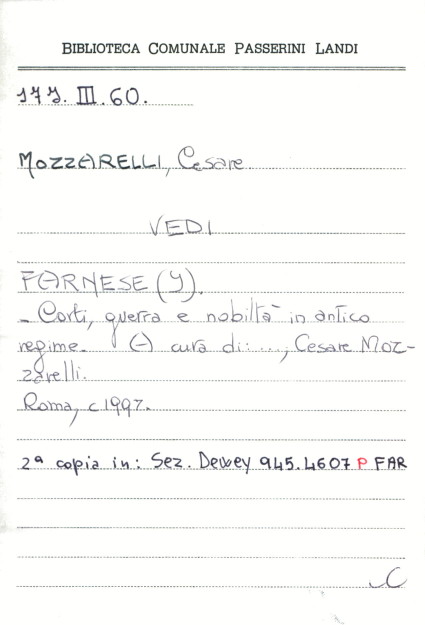 BIBLIOTECA COMUNALE PASSERINI LANDI
177. III. 60.
MOZZARELLI, Cesare
VEDI
FARNESE (I).
- Corti, guerra e nobiltà in antico
regime. A cura di: ..., Cesare Moz-
zarelli.
Roma, c1997.
2ª copia in: Sez. Dewey 945.4607 P FAR